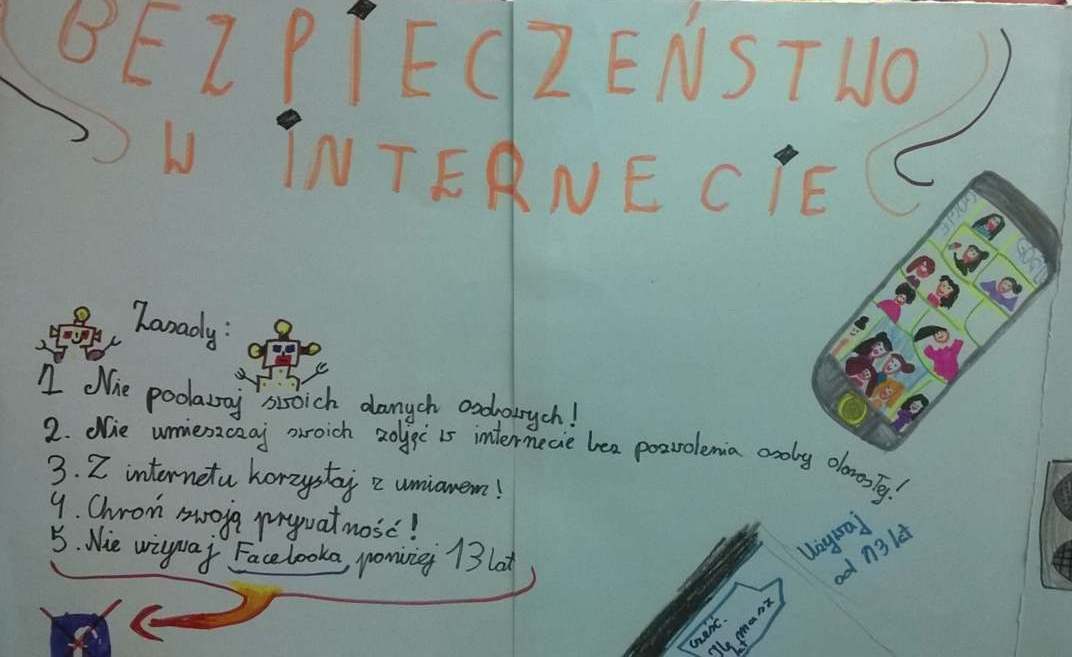 BEZPIECZEŃSTWO
W INTERNECIE
Zasady:
1 Nie podawaj swoich danych osobowych!
2. Nie umieszczaj swoich zdjęć w internecie bez pozwolenia osoby dorosłej!
3. Z internetu korzystaj z umiarem!
4. Chroń swoją prywatność!
5. Nie używaj Facebooka poniżej 13 lat
f
Używaj
od 13 lat
cześć.
Ile masz
lat